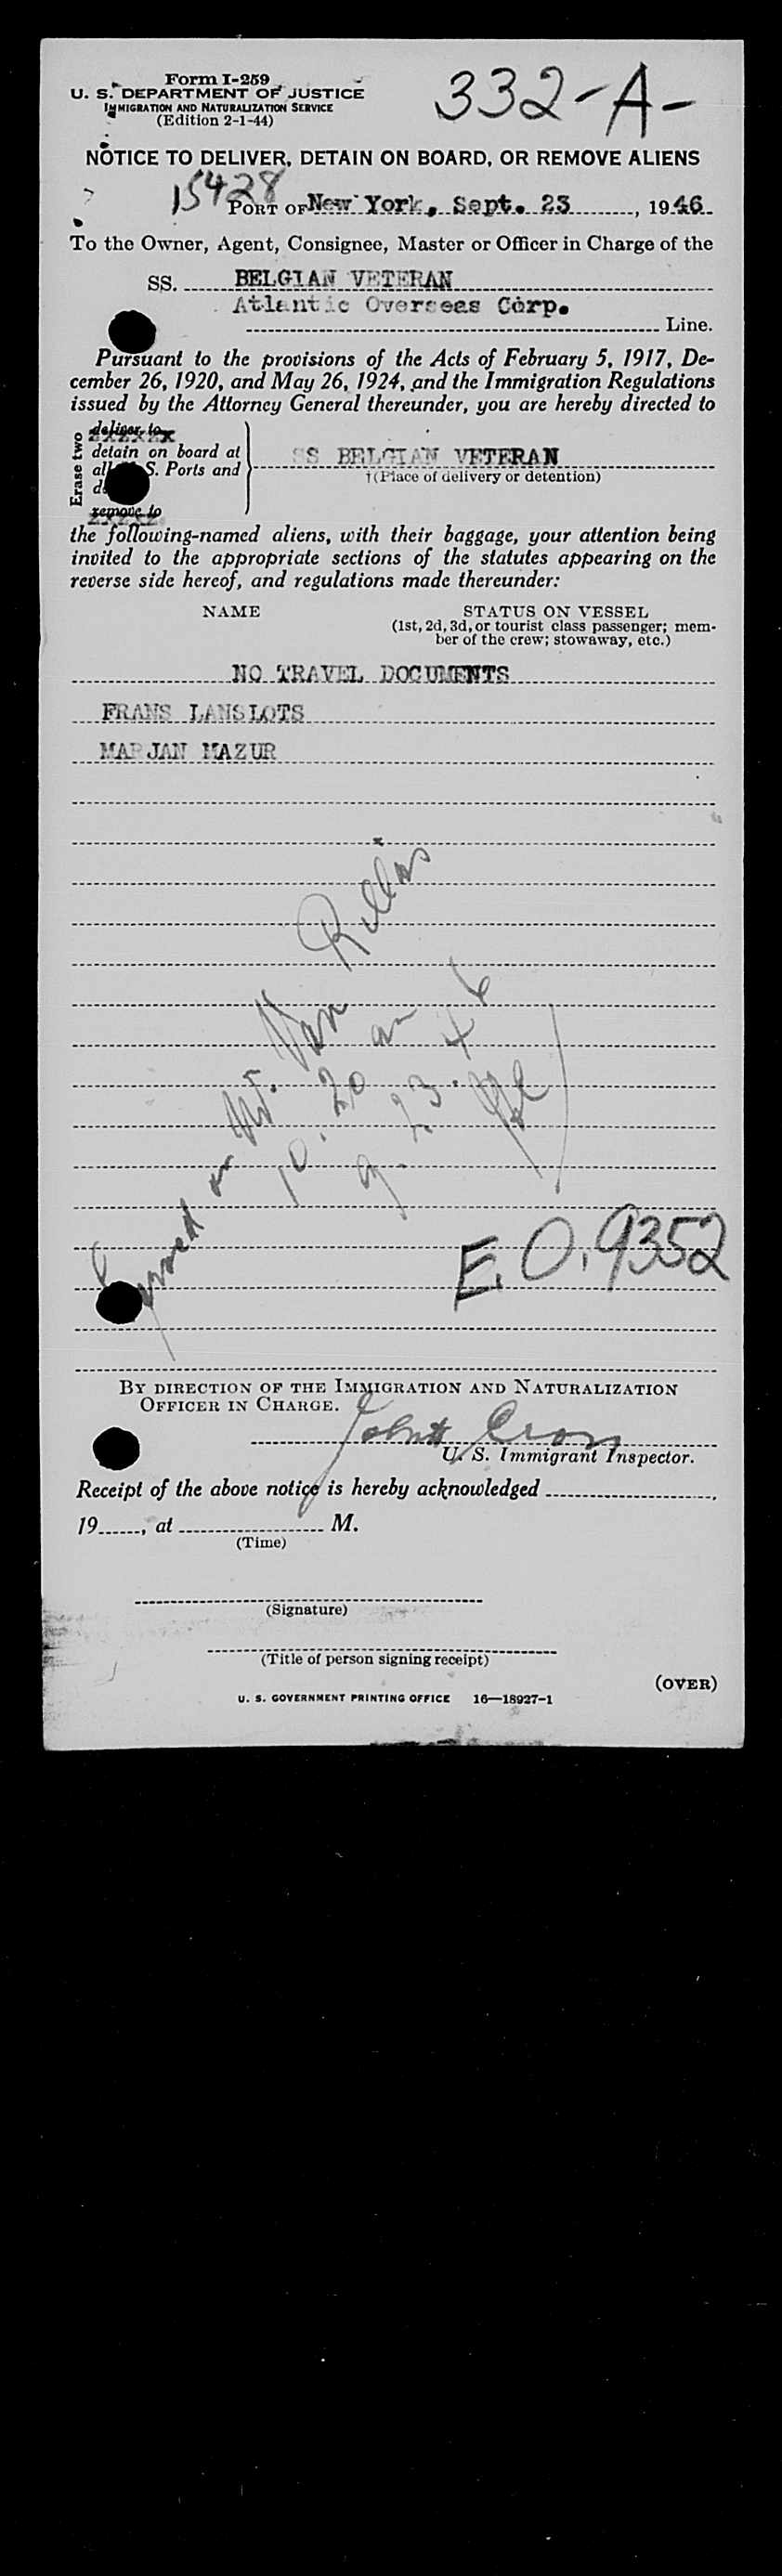 Form I-259
U. S. DEPARTMENT OF JUSTICE
IMMIGRATION AND NATURALIZATION SERVICE
(Edition 2-1-44)
332-A-
NOTICE TO DELIVER, DETAIN ON BOARD, OR REMOVE ALIENS
15428
PORT OF New York, Sept. 23, 1946
To the Owner, Agent, Consignee, Master or Officer in Charge of the
SS. BELGIAN VETERAN
Atlantic Overseas Corp.
Line.
Pursuant to the provisions of the Acts of February 5, 1917, De-
cember 26, 1920, and May 26, 1924, and the Immigration Regulations
issued by the Attorney General thereunder, you are hereby directed to
Erase two
deliver to
detain on board at
all S. Ports and
SS BELGIAN VETERAN
†(Place of delivery or detention)
remove to
the following-named aliens, with their baggage, your attention being
invited to the appropriate sections of the statutes appearing on the
reverse side hereof, and regulations made thereunder:
NAME
STATUS ON VESSEL
(1st, 2d, 3d, or tourist class passenger; mem-
ber of the crew; stowaway, etc.)
NO TRAVEL DOCUMENTS
FRANS LANSLOTS
MARJAN MAZUR
on Mr. Van
10.20 am
9.23.46
E.O. 9352
BY DIRECTION OF THE IMMIGRATION AND NATURALIZATION
OFFICER IN CHARGE.
U. S. Immigrant Inspector.
Receipt of the above notice is hereby acknowledged
19, at M.
(Time)
(Signature)
(Title of person signing receipt)
(OVER)
U. S. GOVERNMENT PRINTING OFFICE 16—18927-1